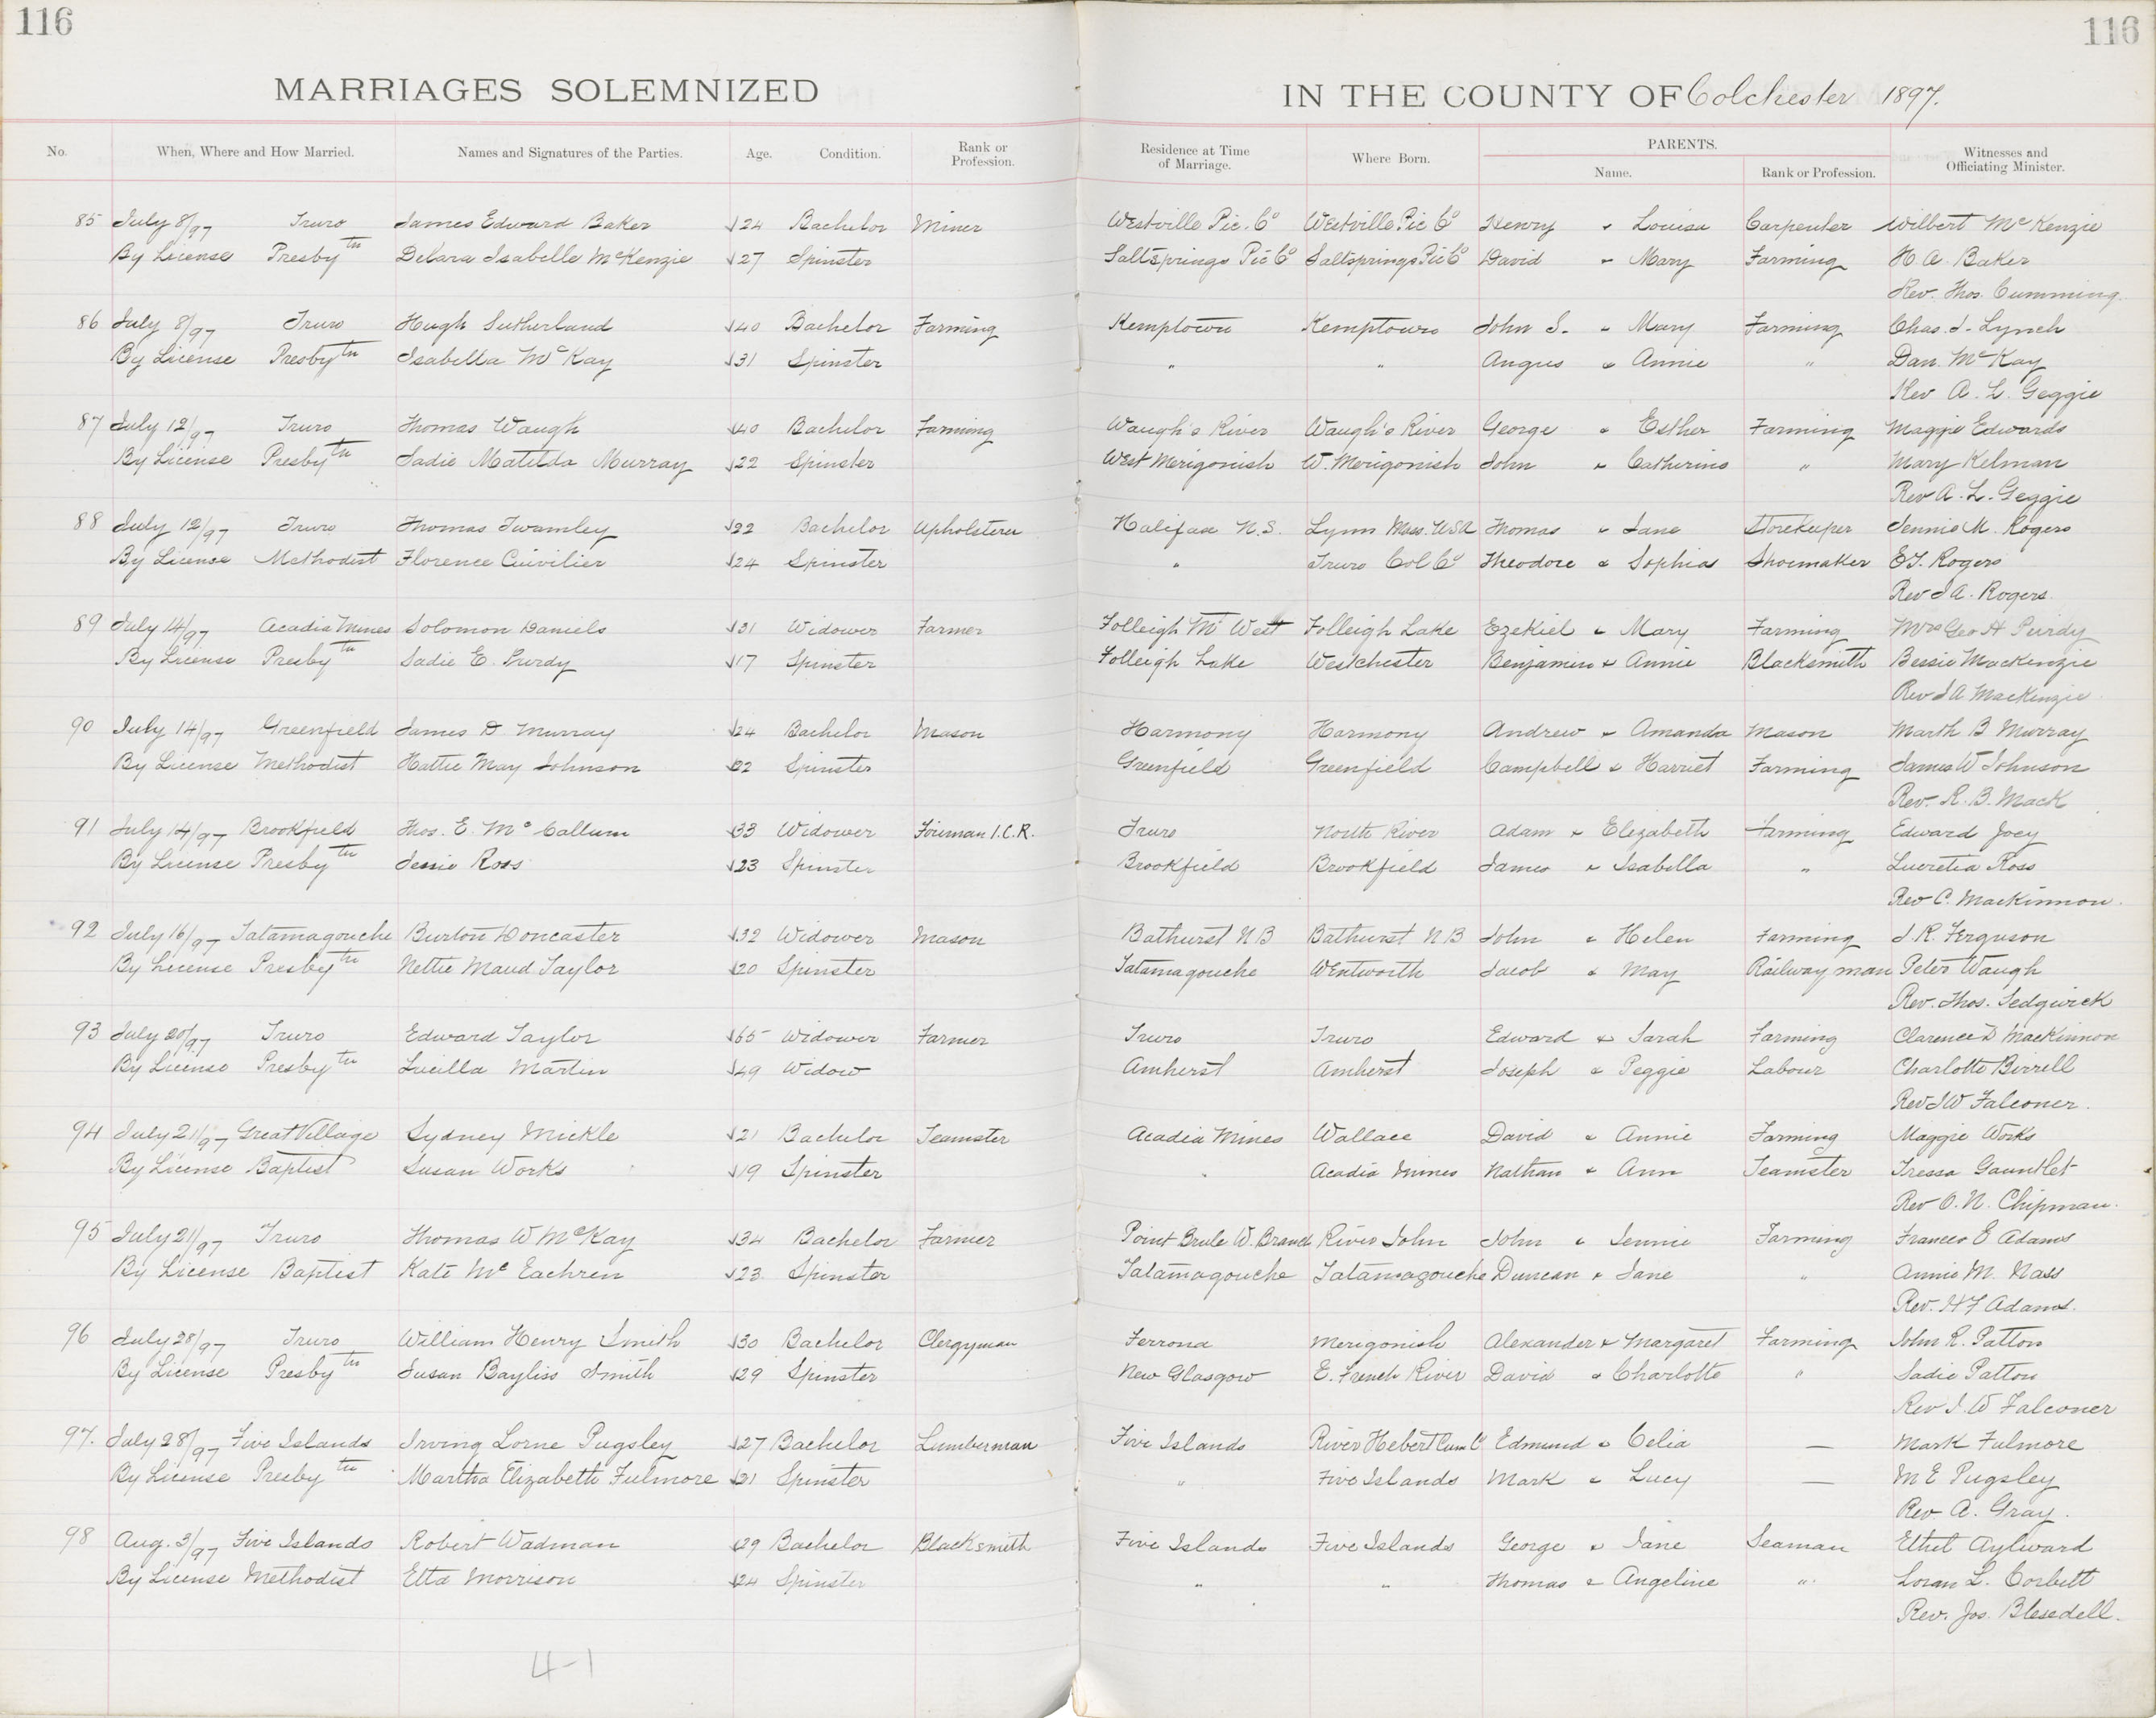 116
116
MARRIAGES SOLEMNIZED IN THE COUNTY OF Colchester 1897.
No. When, Where and How Married. Names and Signatures of the Parties. Age. Condition. Rank or Profession. Residence at Time of Marriage. Where Born. PARENTS. Name. Rank or Profession. Witnesses and Officiating Minister.
85 July 8/97 Truro James Edward Baker 24 Bachelor Miner Westville Pic. Co Westville Pic Co Henry & Louisa Carpenter Wilbert McKenzie
By License Presbytn Delara Isabelle McKenzie 27 Spinster Saltsprings Pic Co Saltsprings Pic Co David & Mary Farming H. A. Baker
Rev. Thos. Cumming.
86 July 8/97 Truro Hugh Sutherland 40 Bachelor Farming Kemptown Kemptown John S. & Mary Farming Chas. I. Lynch
By License Presbytn Isabella McKay 31 Spinster " " Angus & Annie " Dan. McKay
Rev A. L. Geggie
87 July 12/97 Truro Thomas Waugh 40 Bachelor Farming Waugh's River Waugh's River George & Esther Farming Maggie Edwards
By License Presbytn Sadie Matilda Murray 22 Spinster West Merigonish W. Merigonish John & Catherine " Mary Kelman
Rev A. L. Geggie
88 July 12/97 Truro Thomas Twamley 22 Bachelor Upholsterer Halifax N.S. Lynn Mass. USA Thomas & Jane Storekeeper Jennie M. Rogers
By License Methodist Florence Cuivilier 24 Spinster " Truro Col Co Theodore & Sophia Shoemaker E.T. Rogers
Rev J A. Rogers.
89 July 14/97 Acadia Mines Solomon Daniels 31 Widower Farmer Folleigh Mt West Folleigh Lake Ezekiel & Mary Farming Mrs Geo H Purdy
By License Presbytn Sadie E. Purdy 17 Spinster Folleigh Lake Westchester Benjamin & Annie Blacksmith Bessie MacKenzie
Rev J A MacKinzie.
90 July 14/97 Greenfield James D Murray 24 Bachelor Mason Harmony Harmony Andrew & Amanda Mason Marth B Murray
By License Methodist Hattie May Johnson 22 Spinster Greenfield Greenfield Campbell & Harriet Farming James W Johnson
Rev. R. B. Mack
91 July 14/97 Brookfield Thos. E. McCallum 33 Widower Foreman I.C.R. Truro North River Adam & Elizabeth Farming Edward Joey
By License Presbytn Jessie Ross 23 Spinster Brookfield Brookfield James & Isabella " Lucretia Ross
Rev C. Mackinnon.
92 July 16/97 Tatamagouche Burton Doncaster 32 Widower Mason Bathurst N B Bathurst N B John & Helen Farming J. R. Ferguson
By License Presbytn Nettie Maud Taylor 20 Spinster Tatamagouche Wentworth Jacob & May Railway man Peter Waugh
Rev. Thos. Sedgwick
93 July 20/97 Truro Edward Taylor 65 Widower Farmer Truro Truro Edward & Sarah Farming Clarence D MacKinnon
By License Presbytn Lucilla Martin 49 Widow Amherst Amherst Joseph & Peggie Labour Charlotte Birrell
Rev J W Falconer.
94 July 21/97 Great Village Sydney Mickle 21 Bachelor Teamster Acadia Mines Wallace David & Annie Farming Maggie Works
By License Baptist Susan Works 19 Spinster " Acadia Mines Nathan & Ann Teamster Tressa Gauntlet
Rev O. N. Chipman.
95 July 21/97 Truro Thomas W McKay 34 Bachelor Farmer Point Brule W. Branch River John John & Jennie Farming Frances E Adams
By License Baptist Kate McEachren 23 Spinster Tatamagouche Tatamagouche Duncan & Jane " Annie M. Nass
Rev. H F Adams.
96 July 28/97 Truro William Henry Smith 30 Bachelor Clergyman Ferrona Merigonish Alexander & Margaret Farming John R. Patton
By License Presbytn Susan Bayliss Smith 29 Spinster New Glasgow E. French River David & Charlotte " Sadie Patton
Rev J. W Falconer
97. July 28/97 Five Islands Irving Lorne Pugsley 27 Bachelor Lumberman Five Islands River Hebert Cum Co Edmund & Celia — Mark Fulmore
By License Presbytn Martha Elizabeth Fulmore 21 Spinster " Five Islands Mark & Lucy — M E Pugsley
Rev A. Gray.
98 Aug. 3/97 Five Islands Robert Wadman 29 Bachelor Blacksmith Five Islands Five Islands George & Jane Seaman Ethel Aylward
By License Methodist Etta Morrison 24 Spinster " " Thomas & Angeline " Loran L. Corbett
Rev. Jos. Blesedell.
4-1